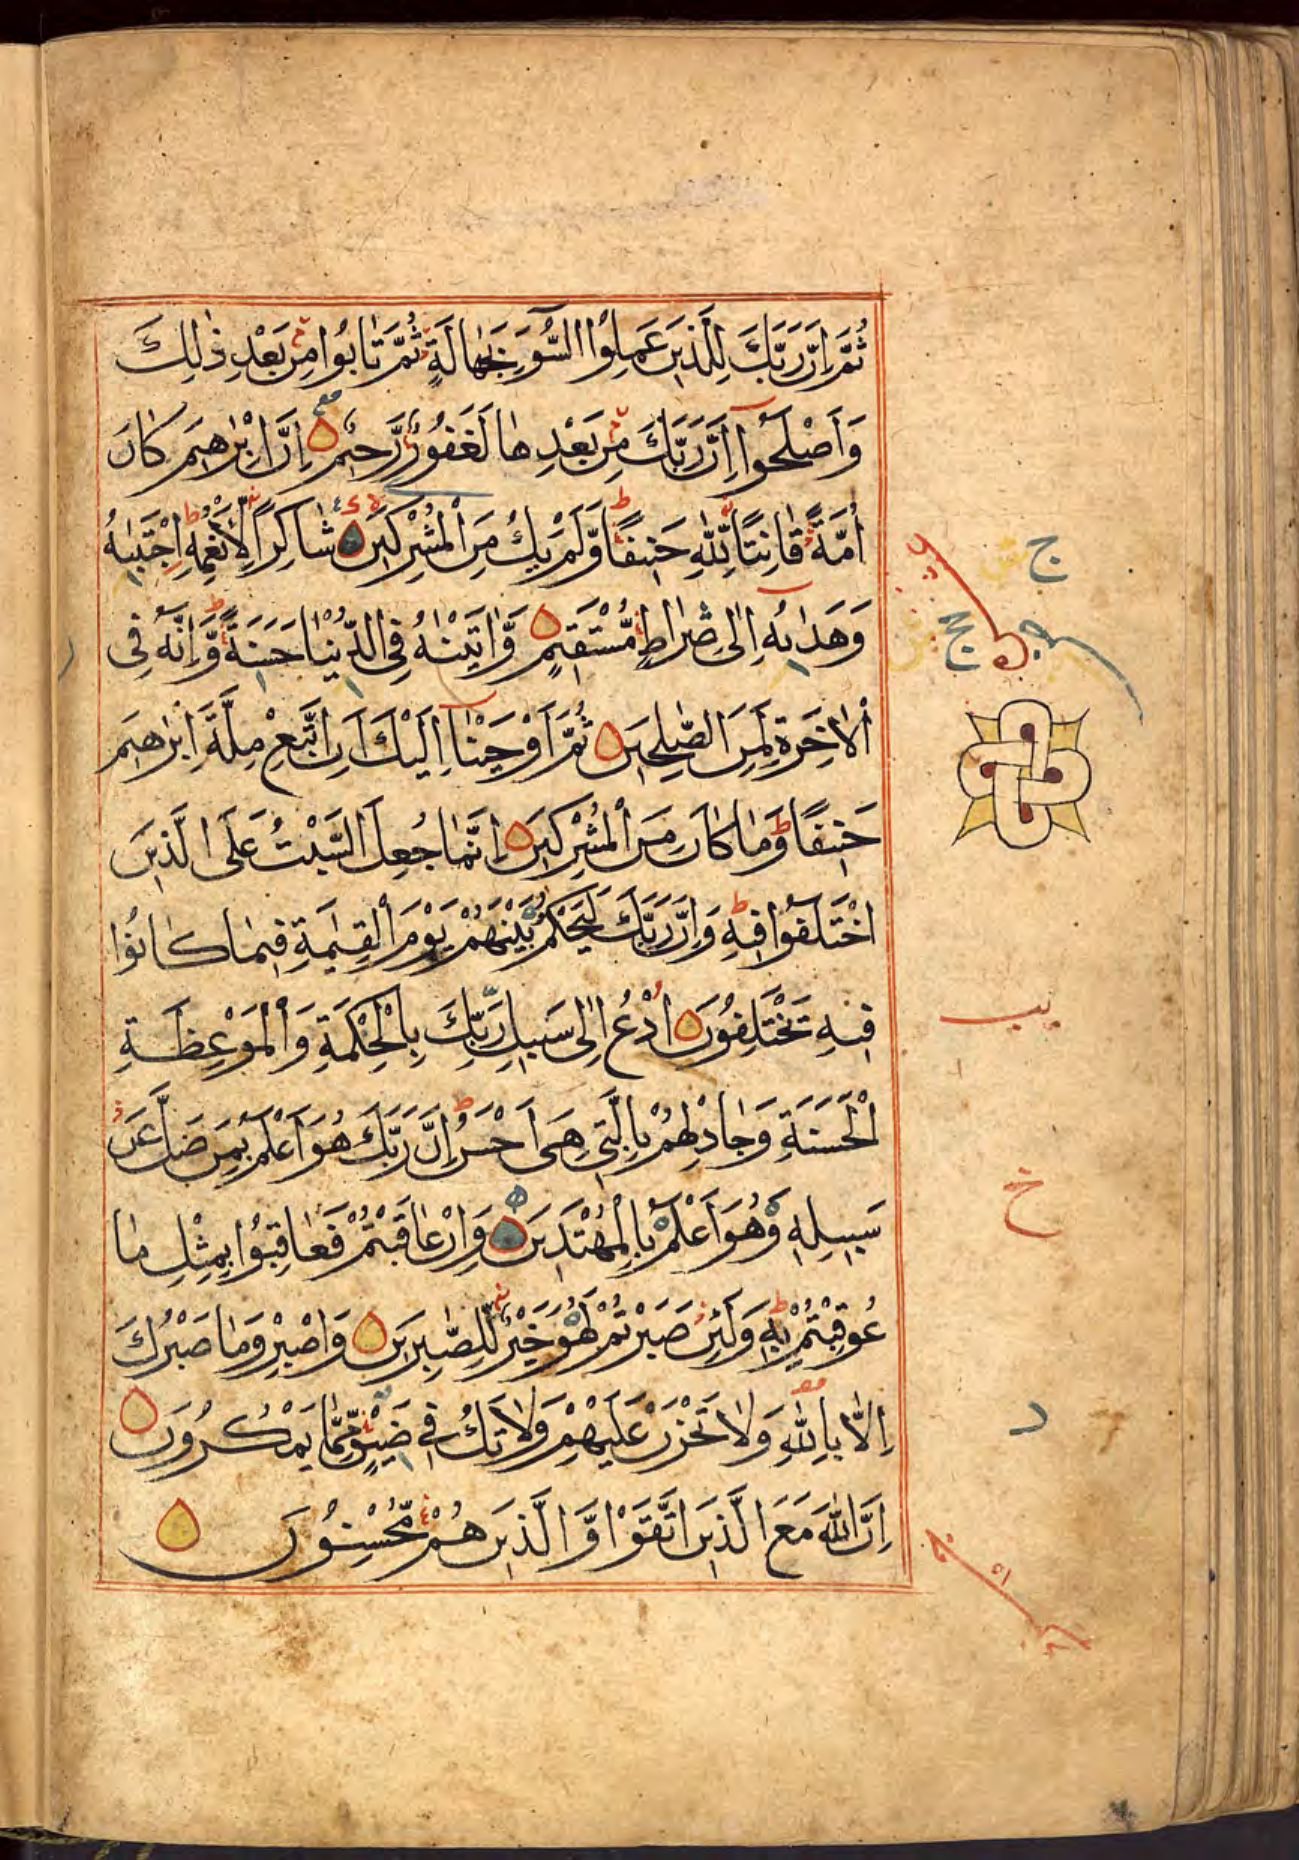 ثُمَّ اِنَّ رَبَّكَ لِلَّذِينَ عَمِلُوا السُّوءَ بِجَهَالَةٍ ثُمَّ تَابُوا مِنْ بَعْدِ ذٰلِكَ
وَاَصْلَحُوا اِنَّ رَبَّكَ مِنْ بَعْدِهَا لَغَفُورٌ رَّحِيمٌ اِنَّ اِبْرٰهِيمَ كَانَ
اُمَّةً قَانِتًا لِّلّٰهِ حَنِيفًا وَّلَمْ يَكُ مِنَ الْمُشْرِكِينَ شَاكِرًا لِّاَنْعُمِهِ اِجْتَبٰىهُ
وَهَدٰىهُ اِلٰى صِرَاطٍ مُّسْتَقِيمٍ وَّاٰتَيْنٰهُ فِى الدُّنْيَا حَسَنَةً وَّاِنَّهُ فِى
الْاٰخِرَةِ لَمِنَ الصّٰلِحِينَ ثُمَّ اَوْحَيْنَا اِلَيْكَ اَنِ اتَّبِعْ مِلَّةَ اِبْرٰهِيمَ
حَنِيفًا وَّمَا كَانَ مِنَ الْمُشْرِكِينَ اِنَّمَا جُعِلَ السَّبْتُ عَلَى الَّذِينَ
اخْتَلَفُوا فِيهِ وَاِنَّ رَبَّكَ لَيَحْكُمُ بَيْنَهُمْ يَوْمَ الْقِيٰمَةِ فِيمَا كَانُوا
فِيهِ يَخْتَلِفُونَ اُدْعُ اِلٰى سَبِيلِ رَبِّكَ بِالْحِكْمَةِ وَالْمَوْعِظَةِ
الْحَسَنَةِ وَجَادِلْهُمْ بِالَّتِى هِىَ اَحْسَنُ اِنَّ رَبَّكَ هُوَ اَعْلَمُ بِمَنْ ضَلَّ عَنْ
سَبِيلِهِ وَهُوَ اَعْلَمُ بِالْمُهْتَدِينَ وَاِنْ عَاقَبْتُمْ فَعَاقِبُوا بِمِثْلِ مَا
عُوقِبْتُمْ بِهِ وَلَئِنْ صَبَرْتُمْ لَهُوَ خَيْرٌ لِّلصّٰبِرِينَ وَاصْبِرْ وَمَا صَبْرُكَ
اِلَّا بِاللّٰهِ وَلَا تَحْزَنْ عَلَيْهِمْ وَلَا تَكُ فِى ضَيْقٍ مِّمَّا يَمْكُرُونَ
اِنَّ اللّٰهَ مَعَ الَّذِينَ اتَّقَوْا وَّالَّذِينَ هُمْ مُّحْسِنُونَ